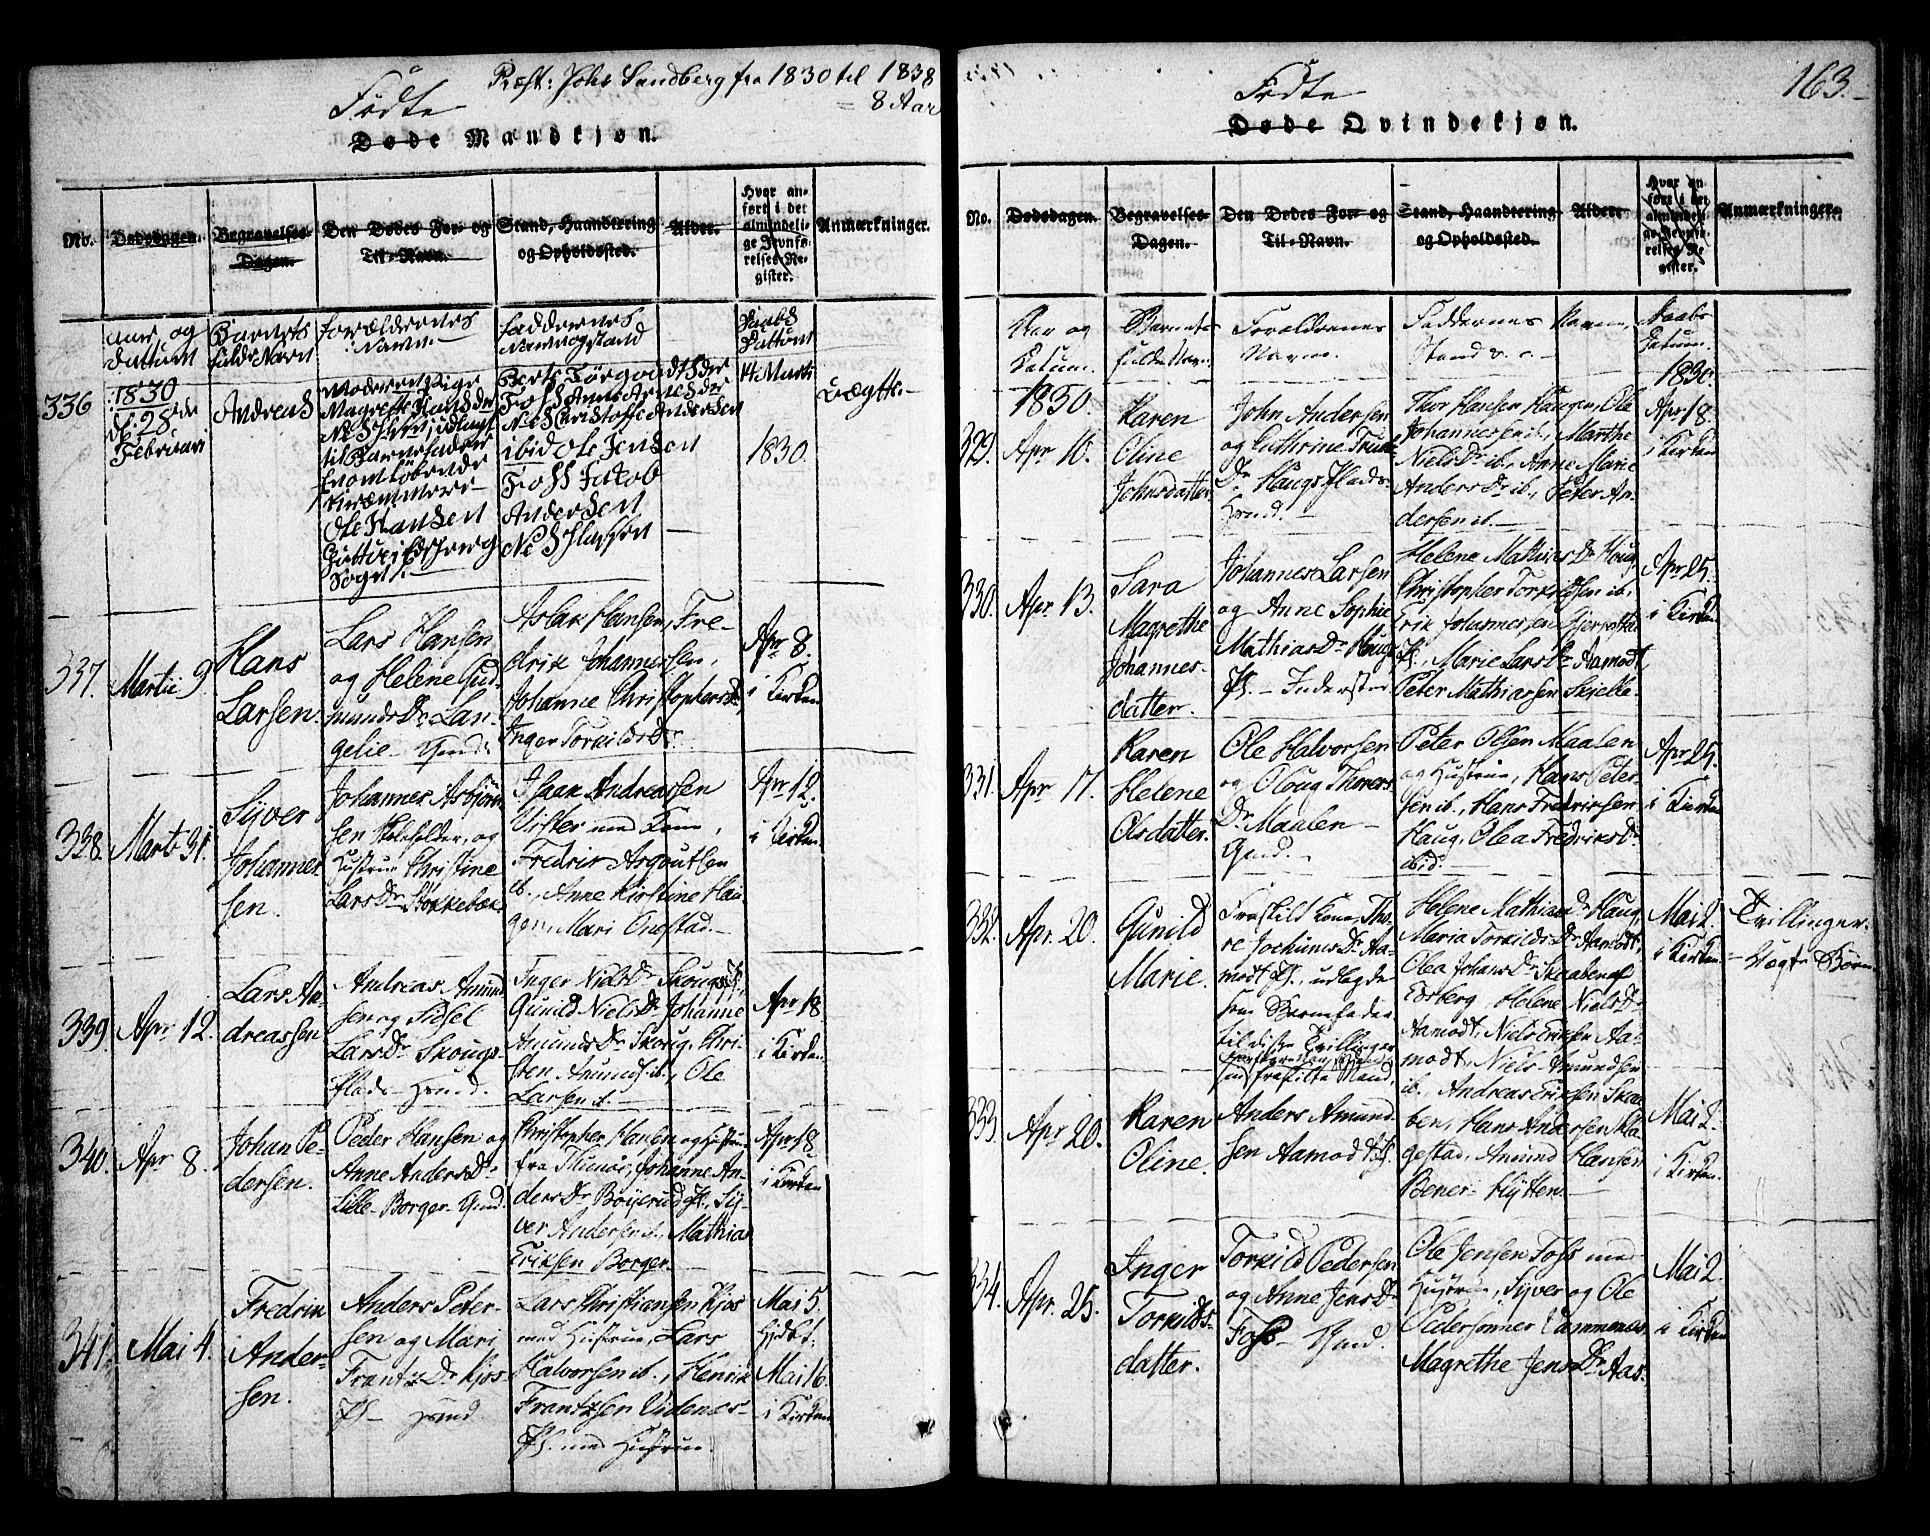 Præst: Johs Sandberg fra 1830 til 1838
= 8 Aar
Fødte
Døde Mandkjøn.
No.
Dødsdagen.
Begravelses-
Dagen.
Den Dødes For- og
Til-Navn.
Stand, Haandtering
og Opholdssted.
Alder.
Hvor an-
ført i det
almindeli-
ge Jevnfø-
relses-Re-
gister.
Anmærkninger.
aar og
Dattum
Barnets
fulde Navn
forældrernes
Navn
faddernes
Navn og stand
Daabs
Dattum
336
1830
d. 28de
Februari
Andreas
Moderen Pige
Magrethe Hansdr
til Barnefader
Ole Hansen
Sogn
Foss Anne
ibid Ole Jensen
Foss Jakob
Andersen
14 Marti
1830.
Uægte.
337.
Martii 9.
Hans
Larsen.
Lars Hansen
og Helene Gud-
mundsDr Lan-
gelie - Gmd.
Aslak Hansen, Fre-
drik Johannesen,
Johanne ChristophersDr
Inger TorkildsDr
Apr 8.
i Kirken
338.
Marti 31.
Syver
Johannes-
sen.
Johannes Asbjørn-
sen Skoleholder, og
Hustrue Christine
LarsDr Stokkebæk.
Isaak Andreassen
Vister med Kone,
Fredrik Asgoutsen
ib., Anne Kirstine Hau-
gen, Mari Onstad.
Apr 12.
i Kirken.
339.
Apr 12.
Lars An-
dreassen
Andreas Amund-
sen og Sidsel
LarsDr Skougs-
Plads - Hmd.
Inger NielsDr Skougs Pl.,
Gunild NielsDr, Johanne
AmundsDr Skoug, Chri-
sten Amunds. ib., Ole
Larsen ib.
Apr 18
i Kirken
340.
Apr 8.
Johan Pe-
dersen.
Peder Hansen og
Anne AndersDr
Lille-Borger Gmd.
Christopher Hansen og Hustrue
fra Thunøe, Johanne An-
dersDr Bøyerud Pl., Sy-
ver Andersen ib., Mathias
Eriksen Borger.
Apr 18.
i Kirken
341.
Mai 4.
Fredrik
Ander-
sen.
Anders Peter-
sen og Mari
FrantzDr Kjos
Pl - Hmd.
Lars Christiansen Kjos
med Hustrue, Lars
Halvorsen ib., Henrik
Frantzsen Videnes-
Pl. med Hustrue.
Mai 5.
Hjdbt.
Mai 16.
i Kirken
163.
Fødte
Døde Qvindekjøn.
No.
Dødsdagen.
Begravelses-
Dagen.
Den Dødes For- og
Til-Navn.
Stand, Haandtering
og Opholdssted.
Alder.
Hvor an-
ført i det
almindeli-
ge Jevnfø-
relses-Re-
gister.
Anmærkninger.
Aar og
Datum.
Barnets
fulde Navn.
Forældrenes
Navne.
Faddernes Navne
Stand
Daabs
Datum.
1830.
1830.
329.
Apr 10.
Karen
Oline
Johnsdatter.
John Andersen
og Cathrine
Dr. Haugs Plads-
Hmd.
Thor Hansen Haugen, Ole
Johannesen ib., Marthe
NielsDr ib., Anne Marie
AndersDr ib., Peter An-
dersen ib.
Apr 18.
i Kirken
330.
Apr 13.
Sara
Magrethe
Johannes-
datter.
Johannes Larsen
og Anne Sophie
MathiasDr Haugs
Pl. - Inderster
Helene MathiasDr Houg
Christopher Torkildsen ib.
Erik Johannesen
Pl., Marie LarsDr Aamodt,
Peter Mathiassen
Apr 25.
i Kirken
331.
Apr 17.
Karen
Helene
Olsdatter.
Ole Halvorsen
og Oloug Thores-
Dr Maalen
Gmd.
Peter Olsen Maalen
og Hustrue, Hans Peter-
sen ib., Hans Fredriksen
Haug, Olea FredriksDr
ibid.
Apr 25.
i Kirken
332.
Apr. 20.
Gunild
Marie.
Fraskild Kone Tho-
re JochumsDr Aa-
modt Pl., udlagde
som Barnefader
til disse Tvillinger
sin fraskilte Mand,
Helene MathiasDr Haug
Maria TorkildsDr Aamodt,
Olea JohansDr Skaaber af
Edsberg, Helene NielsDr
Aamodt, Niels Eriksen Aa-
modt, Niels Amundsen
ib. Andreas Eriksen Skaa-
ben, Hans Andersen Kla-
gestad, Amund Hansen
Bener-Hytten.
Mai 2.
i Kirken
Tvillinger.
Uægte Børn.
333.
Apr 20.
Karen
Oline.
Anders Amund-
sen Aamodt Pl.
Mai 2.
i Kirken.
334.
Apr. 25.
Inger
Torkilds-
datter.
Torkild Pedersen
og Anne JensDr
Foss - Gmd.
Ole Jensen Foss med
Hustrue, Syver og Ole
Pedersønner Vammenes,
Magrethe JensDr Aas.
Mai 2.
i Kirken